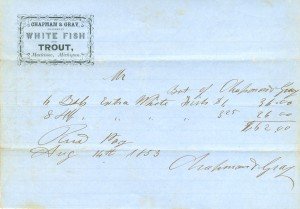 CHAPMAN & GRAY,
WHITE FISH
TROUT,
Mackinac, Michigan.
Mr
Bot of Chapman & Gray
6 Bbls Extra White Fish $6 36.00
8 Hf " " " 3.25 26.00
$62.00
Rec'd Pay
Aug 14th 1853
Chapman & Gray